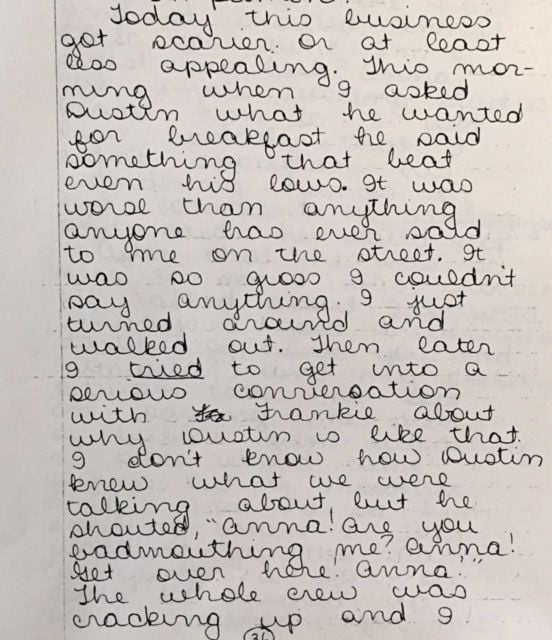 Today this business
got scarier. Or at least
less appealing. This mor-
ning when I asked
Dustin what he wanted
for breakfast he said
something that beat
even his lows. It was
worse than anything
anyone has ever said
to me on the street. It
was so gross I couldn't
say anything. I just
turned around and
walked out. Then later
I tried to get into a
serious conversation
with Frankie about
why Dustin is like that.
I don't know how Dustin
knew what we were
talking about, but he
shouted, "Anna! Are you
badmouthing me? Anna!
Get over here, Anna!"
The whole crew was
cracking up and I
36